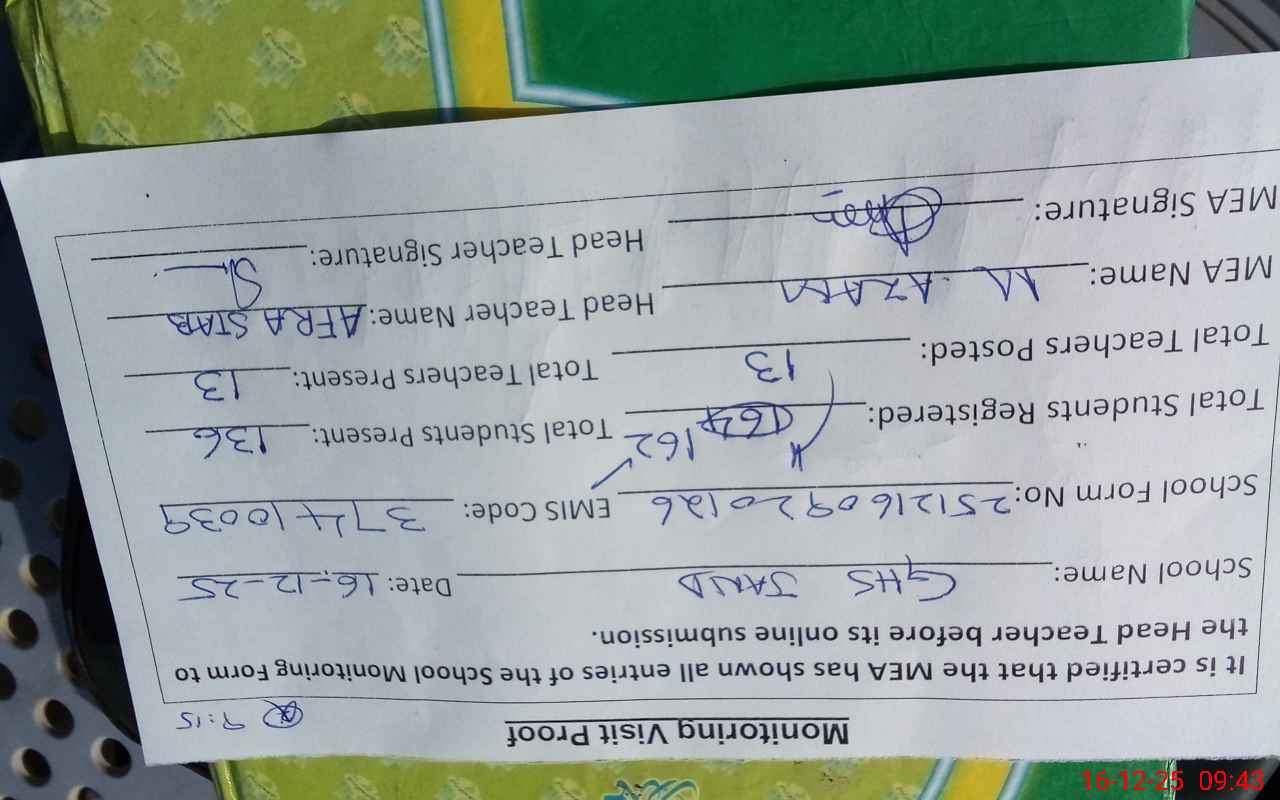 Monitoring Visit Proof
9:15
It is certified that the MEA has shown all entries of the School Monitoring Form to
the Head Teacher before its online submission.
School Name: GHS JAND Date: 16-12-25
School Form No: 2512160920126 EMIS Code: 37410039
Total Students Registered: 164 162 Total Students Present: 136
Total Teachers Posted: 13 Total Teachers Present: 13
MEA Name: M. AZAM Head Teacher Name: AFRA STAB
MEA Signature: Head Teacher Signature:
16-12-25 09:43